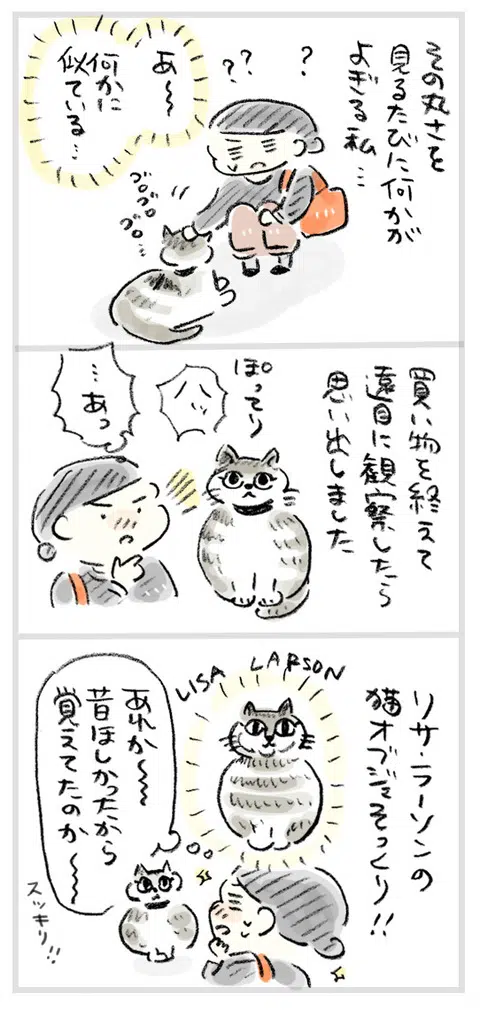 その丸さを
見るたびに何かが
よぎる私…
? ? ?
あ〜〜
何かに
似ている…
ゴロゴロ
ゴロ…
買い物を終えて
遠目に観察したら
思い出しました
ぽってり
…あっ
リサ・ラーソンの
猫オブジェそっくり!!
LISA LARSON
あれか〜〜〜
昔ほしかったから
覚えてたのか〜〜〜
スッキリ!!